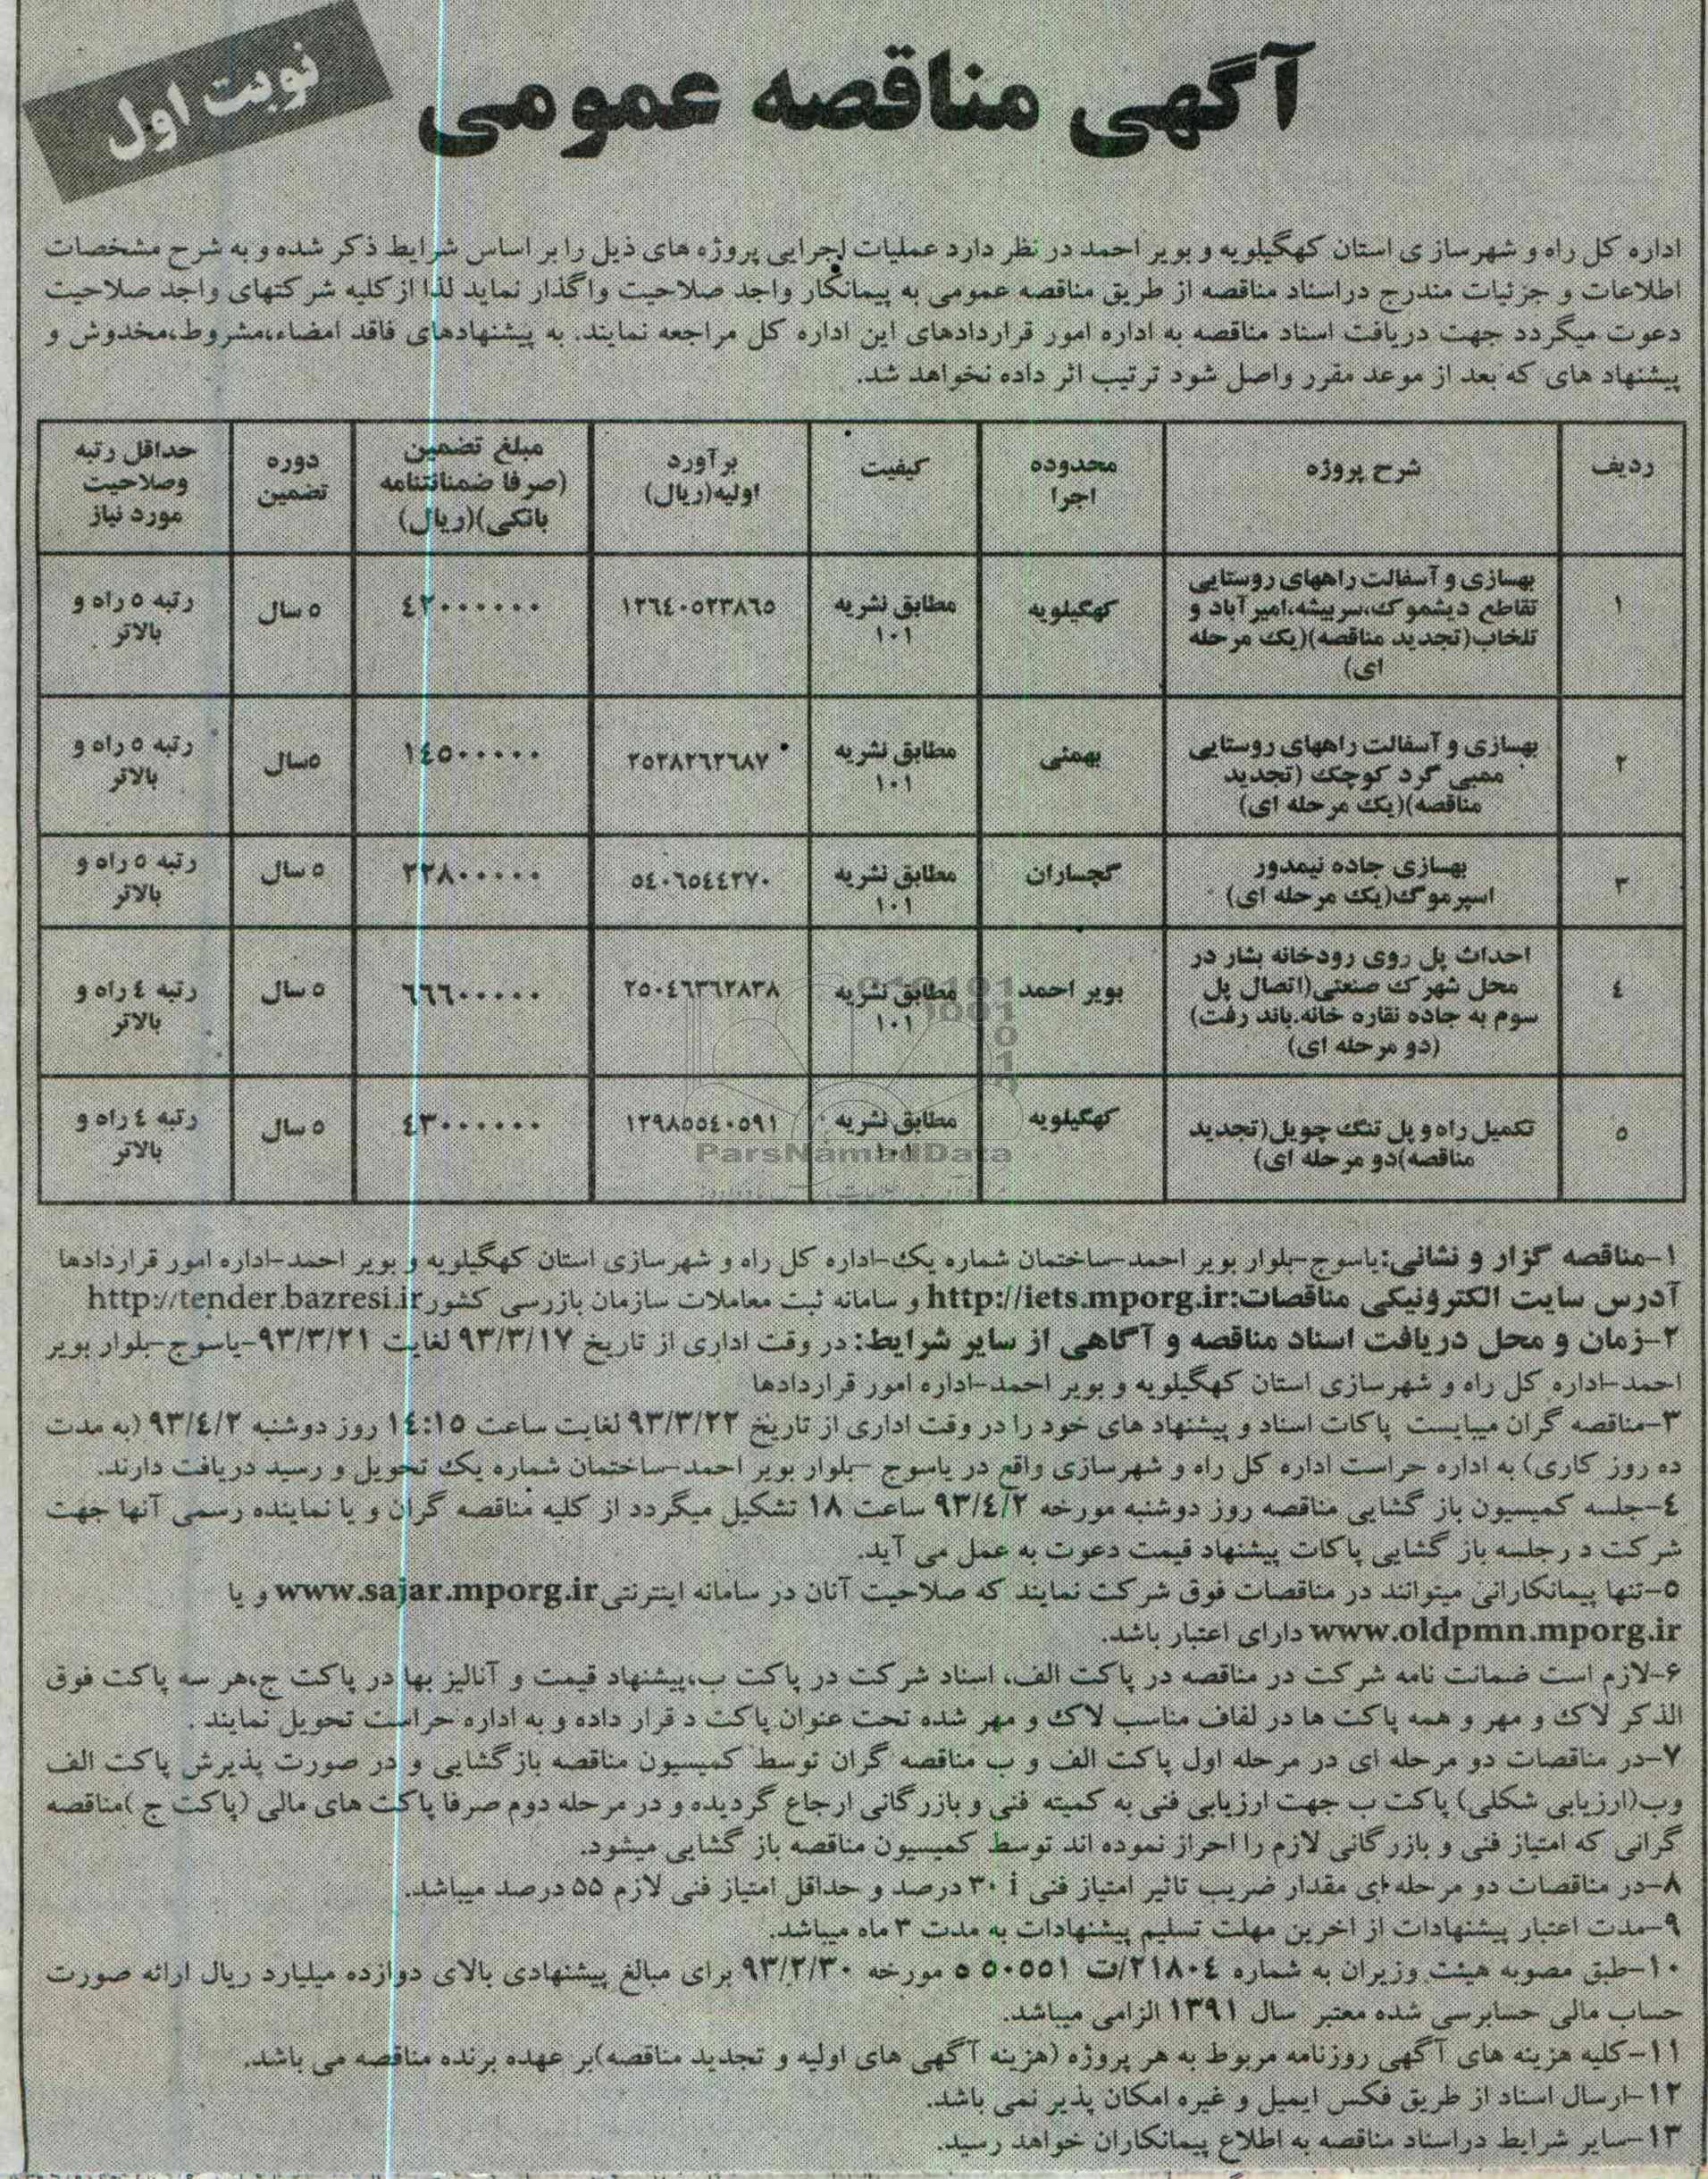 آگهی مناقصه عمومی
نوبت اول
اداره کل راه و شهرسازی استان کهگیلویه و بویر احمد در نظر دارد عملیات اجرایی پروژه های ذیل را بر اساس شرایط ذکر شده و به شرح مشخصات
اطلاعات و جزئیات مندرج دراسناد مناقصه از طریق مناقصه عمومی به پیمانکار واجد صلاحیت واگذار نماید لذا از کلیه شرکتهای واجد صلاحیت
دعوت میگردد جهت دریافت اسناد مناقصه به اداره امور قراردادهای این اداره کل مراجعه نمایند. به پیشنهادهای فاقد امضاء،مشروط،مخدوش و
پیشنهاد های که بعد از موعد مقرر واصل شود ترتیب اثر داده نخواهد شد.
ردیف | شرح پروژه | محدوده اجرا | کیفیت | برآورد اولیه(ریال) | مبلغ تضمین (صرفا ضمانتنامه بانکی)(ریال) | دوره تضمین | حداقل رتبه وصلاحیت مورد نیاز
۱ | بهسازی و آسفالت راههای روستایی تقاطع دیشموک،سربیشه،امیرآباد و تلخاب(تجدید مناقصه)(یک مرحله ای) | کهگیلویه | مطابق نشریه ۱۰۱ | ۱۲٦٤۰٥۲۳۸٦٥ | ٤۲۰۰۰۰۰۰ | ٥ سال | رتبه ٥ راه و بالاتر
۲ | بهسازی و آسفالت راههای روستایی ممبی گرد کوچک (تجدید مناقصه)(یک مرحله ای) | بهمئی | مطابق نشریه ۱۰۱ | ۲٥۲۸۲٦۲٦۸۷ | ۱٤٥۰۰۰۰۰۰ | ٥سال | رتبه ٥ راه و بالاتر
۳ | بهسازی جاده نیمدور اسپرموگ(یک مرحله ای) | گچساران | مطابق نشریه ۱۰۱ | ٥٤۰٦٥٤٤۲۷۰ | ۲۲۸۰۰۰۰۰۰ | ٥ سال | رتبه ٥ راه و بالاتر
٤ | احداث پل روی رودخانه بشار در محل شهرک صنعتی(اتصال پل سوم به جاده نقاره خانه.باند رفت)(دو مرحله ای) | بویر احمد | مطابق نشریه ۱۰۱ | ۲٥۰٤٦۳٦۲۸۳۸ | ٦٦٦۰۰۰۰۰۰ | ٥ سال | رتبه ٤ راه و بالاتر
٥ | تکمیل راه و پل تنگ چویل(تجدید مناقصه)دو مرحله ای) | کهگیلویه | مطابق نشریه ۱۰۱ | ۱۲۹۸٥٥٤۰٥۹۱ | ٤۳۰۰۰۰۰۰۰ | ٥ سال | رتبه ٤ راه و بالاتر
ParsNamadData
۱-مناقصه گزار و نشانی:یاسوج-بلوار بویر احمد-ساختمان شماره یک-اداره کل راه و شهرسازی استان کهگیلویه و بویر احمد-اداره امور قراردادها
آدرس سایت الکترونیکی مناقصات:http://iets.mporg.ir و سامانه ثبت معاملات سازمان بازرسی کشورhttp://tender.bazresi.ir
۲-زمان و محل دریافت اسناد مناقصه و آگاهی از سایر شرایط: در وقت اداری از تاریخ ۹۳/۳/۱۷ لغایت ۹۳/۳/۲۱-یاسوج-بلوار بویر
احمد-اداره کل راه و شهرسازی استان کهگیلویه و بویر احمد-اداره امور قراردادها
۳-مناقصه گران میبایست پاکات اسناد و پیشنهاد های خود را در وقت اداری از تاریخ ۹۳/۳/۲۲ لغایت ساعت ۱٤:۱٥ روز دوشنبه ۹۳/٤/۲ (به مدت
ده روز کاری) به اداره حراست اداره کل راه و شهرسازی واقع در یاسوج -بلوار بویر احمد-ساختمان شماره یک تحویل و رسید دریافت دارند.
٤-جلسه کمیسیون باز گشایی مناقصه روز دوشنبه مورخه ۹۳/٤/۲ ساعت ۱۸ تشکیل میگردد از کلیه مناقصه گران و یا نماینده رسمی آنها جهت
شرکت د رجلسه باز گشایی پاکات پیشنهاد قیمت دعوت به عمل می آید.
٥-تنها پیمانکارانی میتوانند در مناقصات فوق شرکت نمایند که صلاحیت آنان در سامانه اینترنتی www.sajar.mporg.ir و یا
www.oldpmn.mporg.ir دارای اعتبار باشد.
۶-لازم است ضمانت نامه شرکت در مناقصه در پاکت الف، اسناد شرکت در پاکت ب،پیشنهاد قیمت و آنالیز بها در پاکت ج،هر سه پاکت فوق
الذکر لاک و مهر و همه پاکت ها در لفاف مناسب لاک و مهر شده تحت عنوان پاکت د قرار داده و به اداره حراست تحویل نمایند .
۷-در مناقصات دو مرحله ای در مرحله اول پاکت الف و ب مناقصه گران توسط کمیسیون مناقصه بازگشایی و در صورت پذیرش پاکت الف
وب(ارزیابی شکلی) پاکت ب جهت ارزیابی فنی به کمیته فنی و بازرگانی ارجاع گردیده و در مرحله دوم صرفا پاکت های مالی (پاکت ج )مناقصه
گرانی که امتیاز فنی و بازرگانی لازم را احراز نموده اند توسط کمیسیون مناقصه باز گشایی میشود.
۸-در مناقصات دو مرحله ای مقدار ضریب تاثیر امتیاز فنی i ۳۰ درصد و حداقل امتیاز فنی لازم ۵۵ درصد میباشد.
۹-مدت اعتبار پیشنهادات از اخرین مهلت تسلیم پیشنهادات به مدت ۳ ماه میباشد.
۱۰-طبق مصوبه هیئت وزیران به شماره ۲۱۸۰٤/ت ٥۰٥٥۱ ه مورخه ۹۳/۲/۳۰ برای مبالغ پیشنهادی بالای دوازده میلیارد ریال ارائه صورت
حساب مالی حسابرسی شده معتبر سال ۱۳۹۱ الزامی میباشد.
۱۱-کلیه هزینه های آگهی روزنامه مربوط به هر پروژه (هزینه آگهی های اولیه و تجدید مناقصه)بر عهده برنده مناقصه می باشد.
۱۲-ارسال اسناد از طریق فکس ایمیل و غیره امکان پذیر نمی باشد.
۱۳-سایر شرایط دراسناد مناقصه به اطلاع پیمانکاران خواهد رسید.